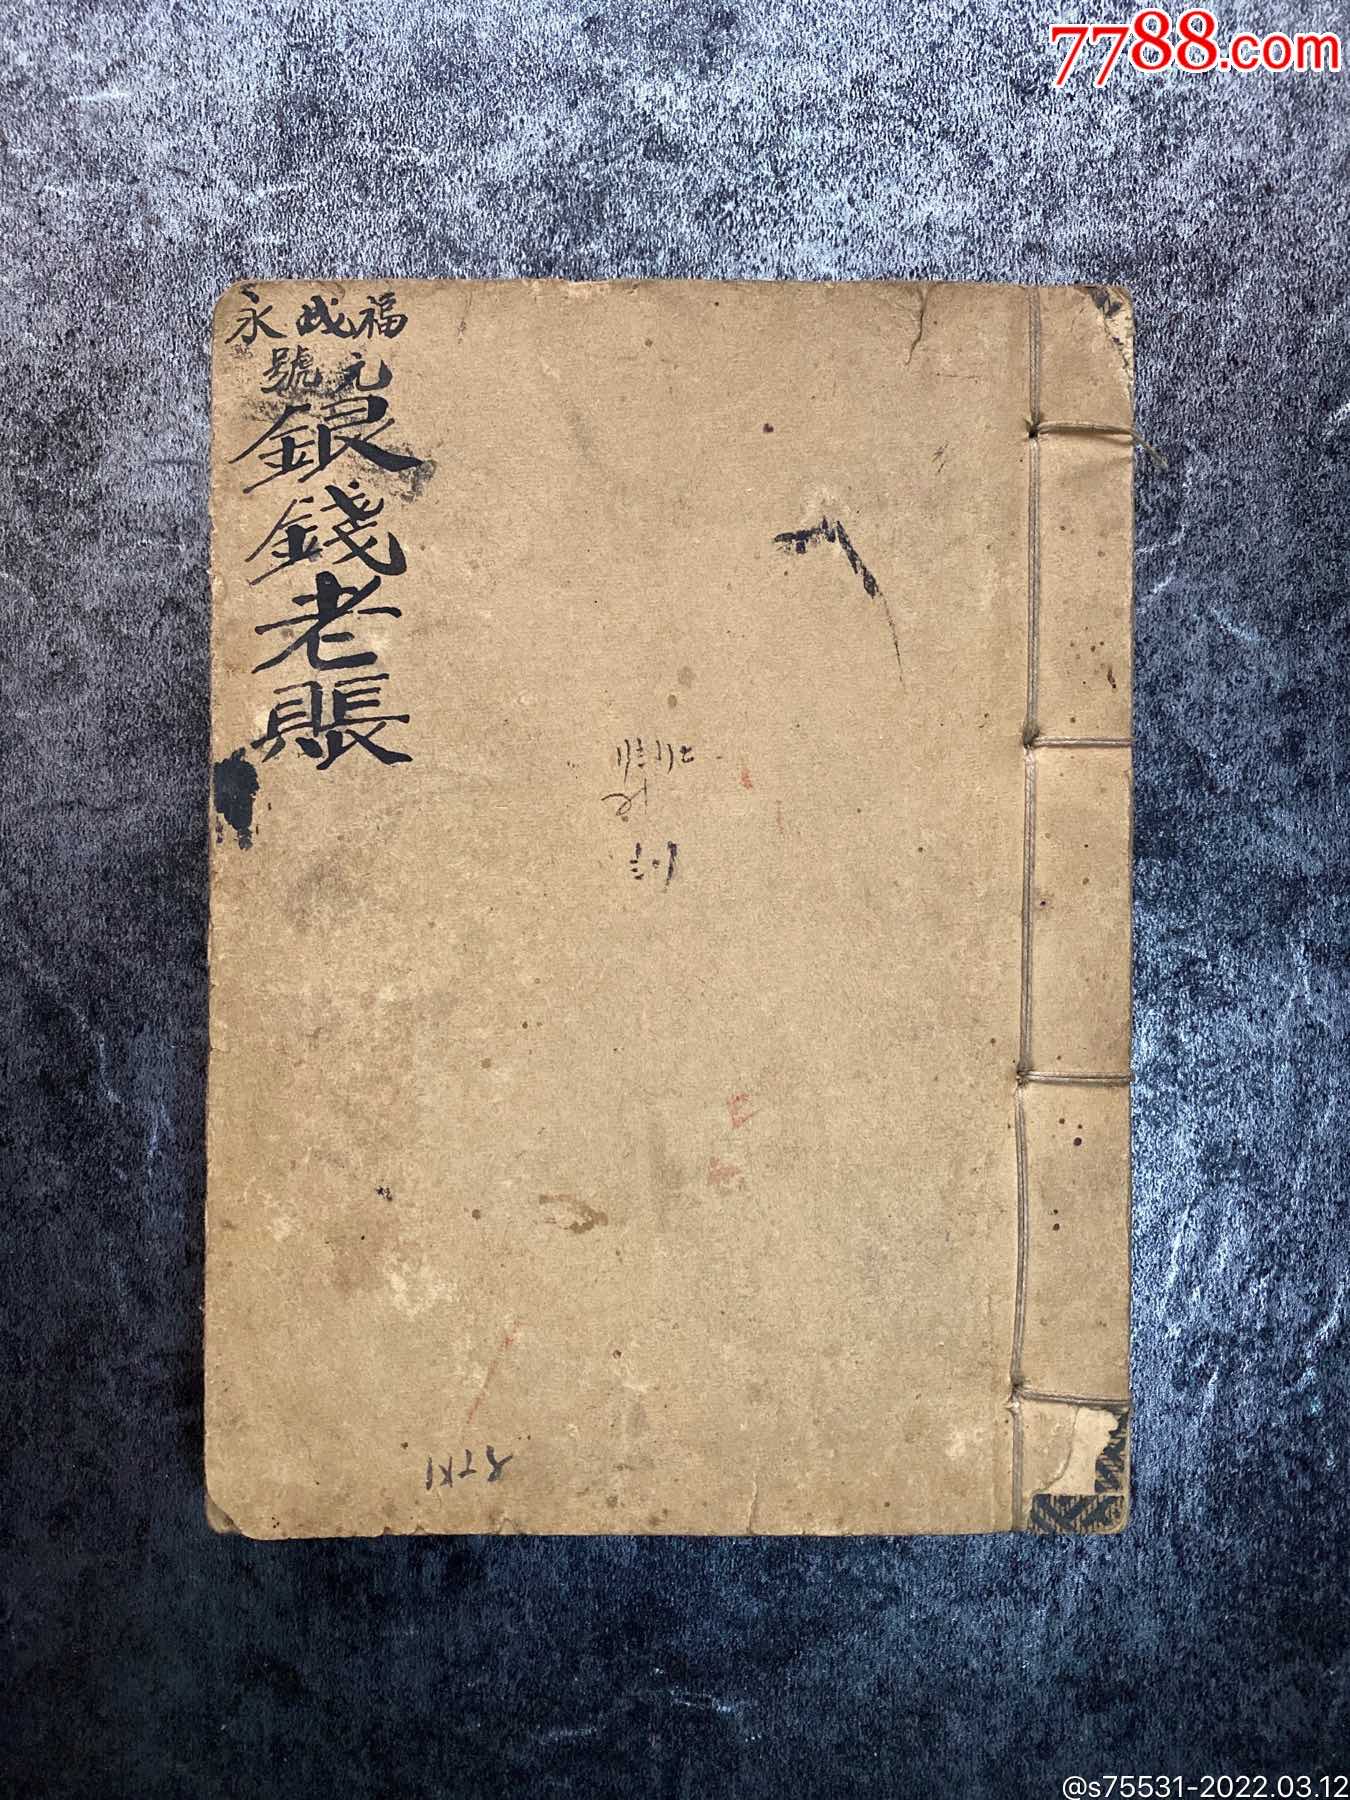 7788.com
福成永
元號
銀錢老賬
@s75531-2022.03.12